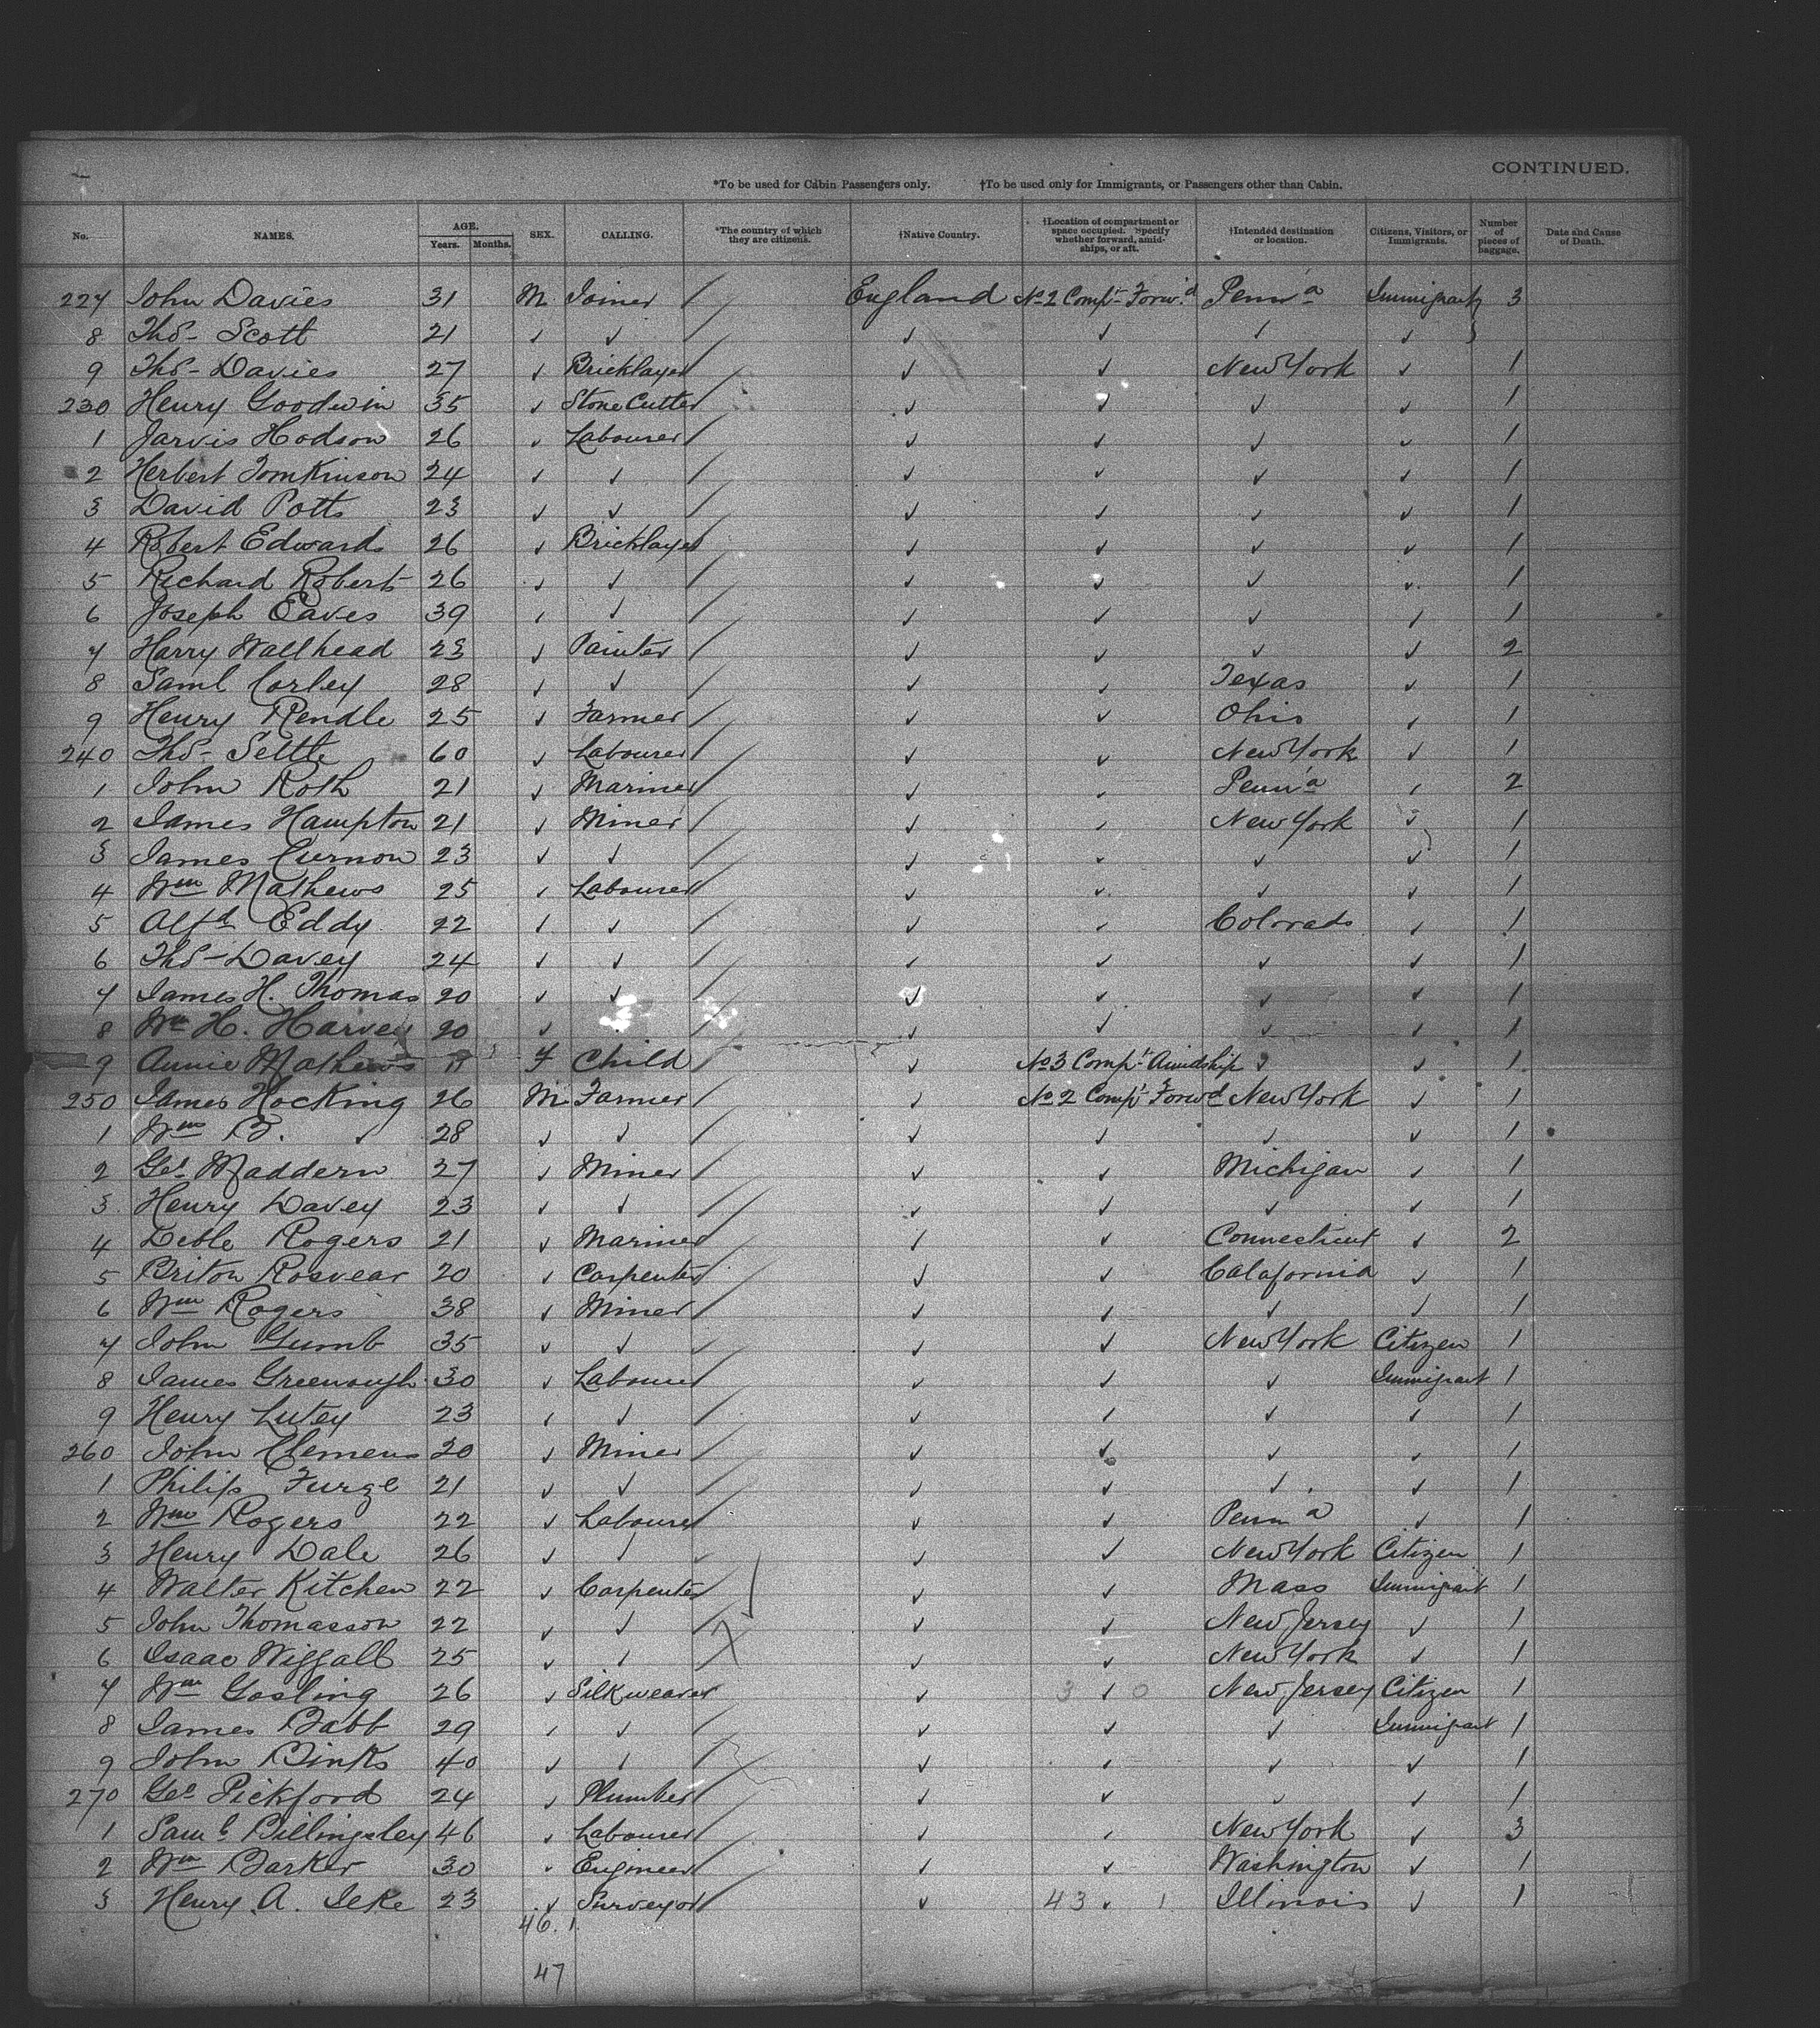 CONTINUED.
*To be used for Cabin Passengers only. †To be used only for Immigrants, or Passengers other than Cabin.
No. NAMES. AGE. Years. Months. SEX. CALLING. *The country of which they are citizens. †Native Country. †Location of compartment or space occupied. Specify whether forward, amidships, or aft. †Intended destination or location. Citizens, Visitors, or Immigrants. Number of pieces of baggage. Date and Cause of Death.
227 John Davies 31 M Joiner / England No 2 Compt Forw.d Penn'a Immigrant 3
8 Thos- Scott 21 ✓ ✓ / ✓ ✓ ✓ ✓
9 Thos- Davies 27 ✓ Bricklayer / ✓ ✓ New York ✓ 1
230 Henry Goodwin 35 ✓ Stone Cutter / ✓ ✓ ✓ ✓ 1
1 Jarvis Hodson 26 ✓ Labourer / ✓ ✓ ✓ ✓ 1
2 Herbert Tomkinson 24 ✓ ✓ / ✓ ✓ ✓ ✓ 1
3 David Potts 23 ✓ ✓ / ✓ ✓ ✓ ✓ 1
4 Robert Edwards 26 ✓ Bricklayer / ✓ ✓ ✓ ✓ 1
5 Richard Roberts 26 ✓ ✓ / ✓ ✓ ✓ ✓ 1
6 Joseph Eaves 39 ✓ ✓ / ✓ ✓ ✓ ✓ 1
7 Harry Wallhead 23 ✓ Painter / ✓ ✓ ✓ ✓ 2
8 Saml Corley 28 ✓ ✓ / ✓ ✓ Texas ✓ 1
9 Henry Rendle 25 ✓ Farmer / ✓ ✓ Ohio ✓ 1
240 Thos- Settle 60 ✓ Labourer / ✓ ✓ New York ✓ 1
1 John Roth 21 ✓ Mariner / ✓ ✓ Penn'a ✓ 2
2 James Hampton 21 ✓ Miner / ✓ ✓ New York ✓ 1
3 James Curnow 23 ✓ ✓ / ✓ ✓ ✓ ✓ 1
4 Wm Mathews 25 ✓ Labourer / ✓ ✓ ✓ ✓ 1
5 Alfd Eddy 22 ✓ ✓ / ✓ ✓ Colorado ✓ 1
6 Thos- Davey 24 ✓ ✓ / ✓ ✓ ✓ ✓ 1
7 James H. Thomas 20 ✓ ✓ / ✓ ✓ ✓ ✓ 1
8 Wm H. Harvey 20 ✓ / ✓ ✓ ✓ ✓ 1
9 Annie Mathews F Child / ✓ No 3 Compt Amidship ✓ ✓ 1
250 James Hocking 26 M Farmer / ✓ No 2 Compt Forwd New York ✓ 1
1 Wm B. ✓ 28 ✓ ✓ / ✓ ✓ ✓ ✓ 1
2 Geo Maddern 27 ✓ Miner / ✓ ✓ Michigan ✓ 1
3 Henry Davey 23 ✓ ✓ / ✓ ✓ ✓ ✓ 1
4 Deble Rogers 21 ✓ Mariner / ✓ ✓ Connecticut ✓ 2
5 Briton Rosvear 20 ✓ Carpenter / ✓ ✓ Calafornia ✓ 1
6 Wm Rogers 38 ✓ Miner / ✓ ✓ ✓ ✓ 1
7 John Gumb 35 ✓ ✓ ✓ ✓ ✓ New York Citizen 1
8 James Greenough 30 ✓ Labourer / ✓ ✓ ✓ Immigrant 1
9 Henry Lutey 23 ✓ ✓ / ✓ ✓ ✓ ✓ 1
260 John Clemens 20 ✓ Miner / ✓ ✓ ✓ ✓ 1
1 Philip Furze 21 ✓ ✓ / ✓ ✓ ✓ ✓ 1
2 Wm Rogers 22 ✓ Labourer / ✓ ✓ Penn'a ✓ 1
3 Henry Dale 26 ✓ ✓ ✓ ✓ ✓ New York Citizen 1
4 Walter Kitchen 22 ✓ Carpenter / ✓ ✓ Mass Immigrant 1
5 John Thomasson 22 ✓ ✓ / ✓ ✓ New Jersey ✓ 1
6 Isaac Wiggall 25 ✓ ✓ / ✓ ✓ New York ✓ 1
7 Wm Gosling 26 ✓ Silkweaver ✓ 3 ✓ 0 New Jersey Citizen 1
8 James Babb 29 ✓ ✓ / ✓ ✓ ✓ Immigrant 1
9 John Binks 40 ✓ ✓ / ✓ ✓ ✓ ✓ 1
270 Geo Pickford 24 ✓ Plumber / ✓ ✓ ✓ ✓ 1
1 Saml Billingsley 46 ✓ Labourer / ✓ ✓ New York ✓ 3
2 Wm Barker 30 ✓ Engineer / ✓ ✓ Washington ✓ 1
3 Henry A. Jeke 23 ✓ Surveyor / ✓ 43 ✓ 1 Illinois ✓ 1
46. 1.
47